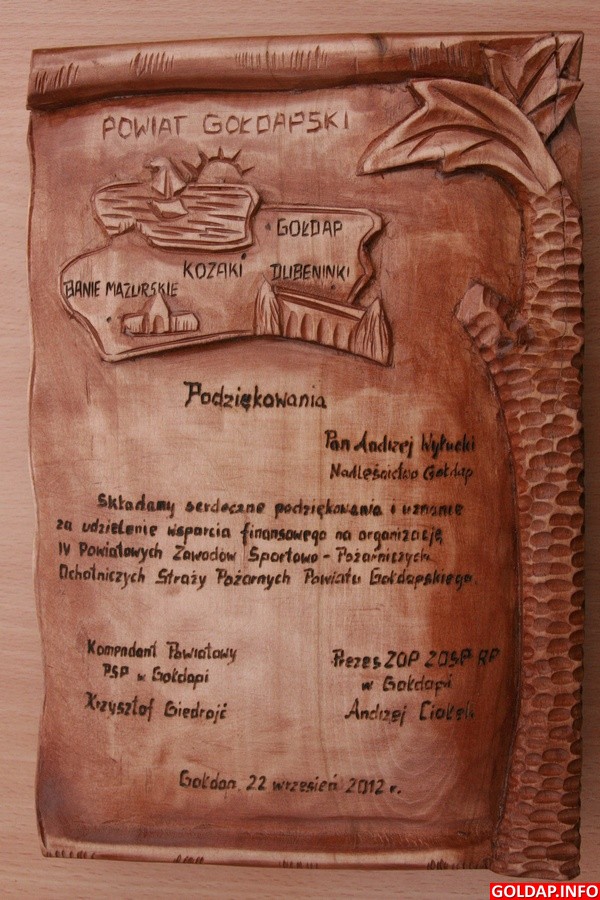 POWIAT GOŁDAPSKI
GOŁDAP
KOZAKI
DUBENINKI
BANIE MAZURSKIE
Podziękowania
Pan Andrzej Wyłucki
Nadleśnictwo Gołdap
Składamy serdeczne podziękowania i uznanie
za udzielenie wsparcia finansowego na organizację
IV Powiatowych Zawodów Sportowo - Pożarniczych
Ochotniczych Straży Pożarnych Powiatu Gołdapskiego.
Komendant Powiatowy
PSP w Gołdapi
Krzysztof Giedrojć
Prezes ZOP ZOSP RP
w Gołdapi
Andrzej Ciołek
Gołdap, 22 wrzesień 2012 r.
GOLDAP.INFO